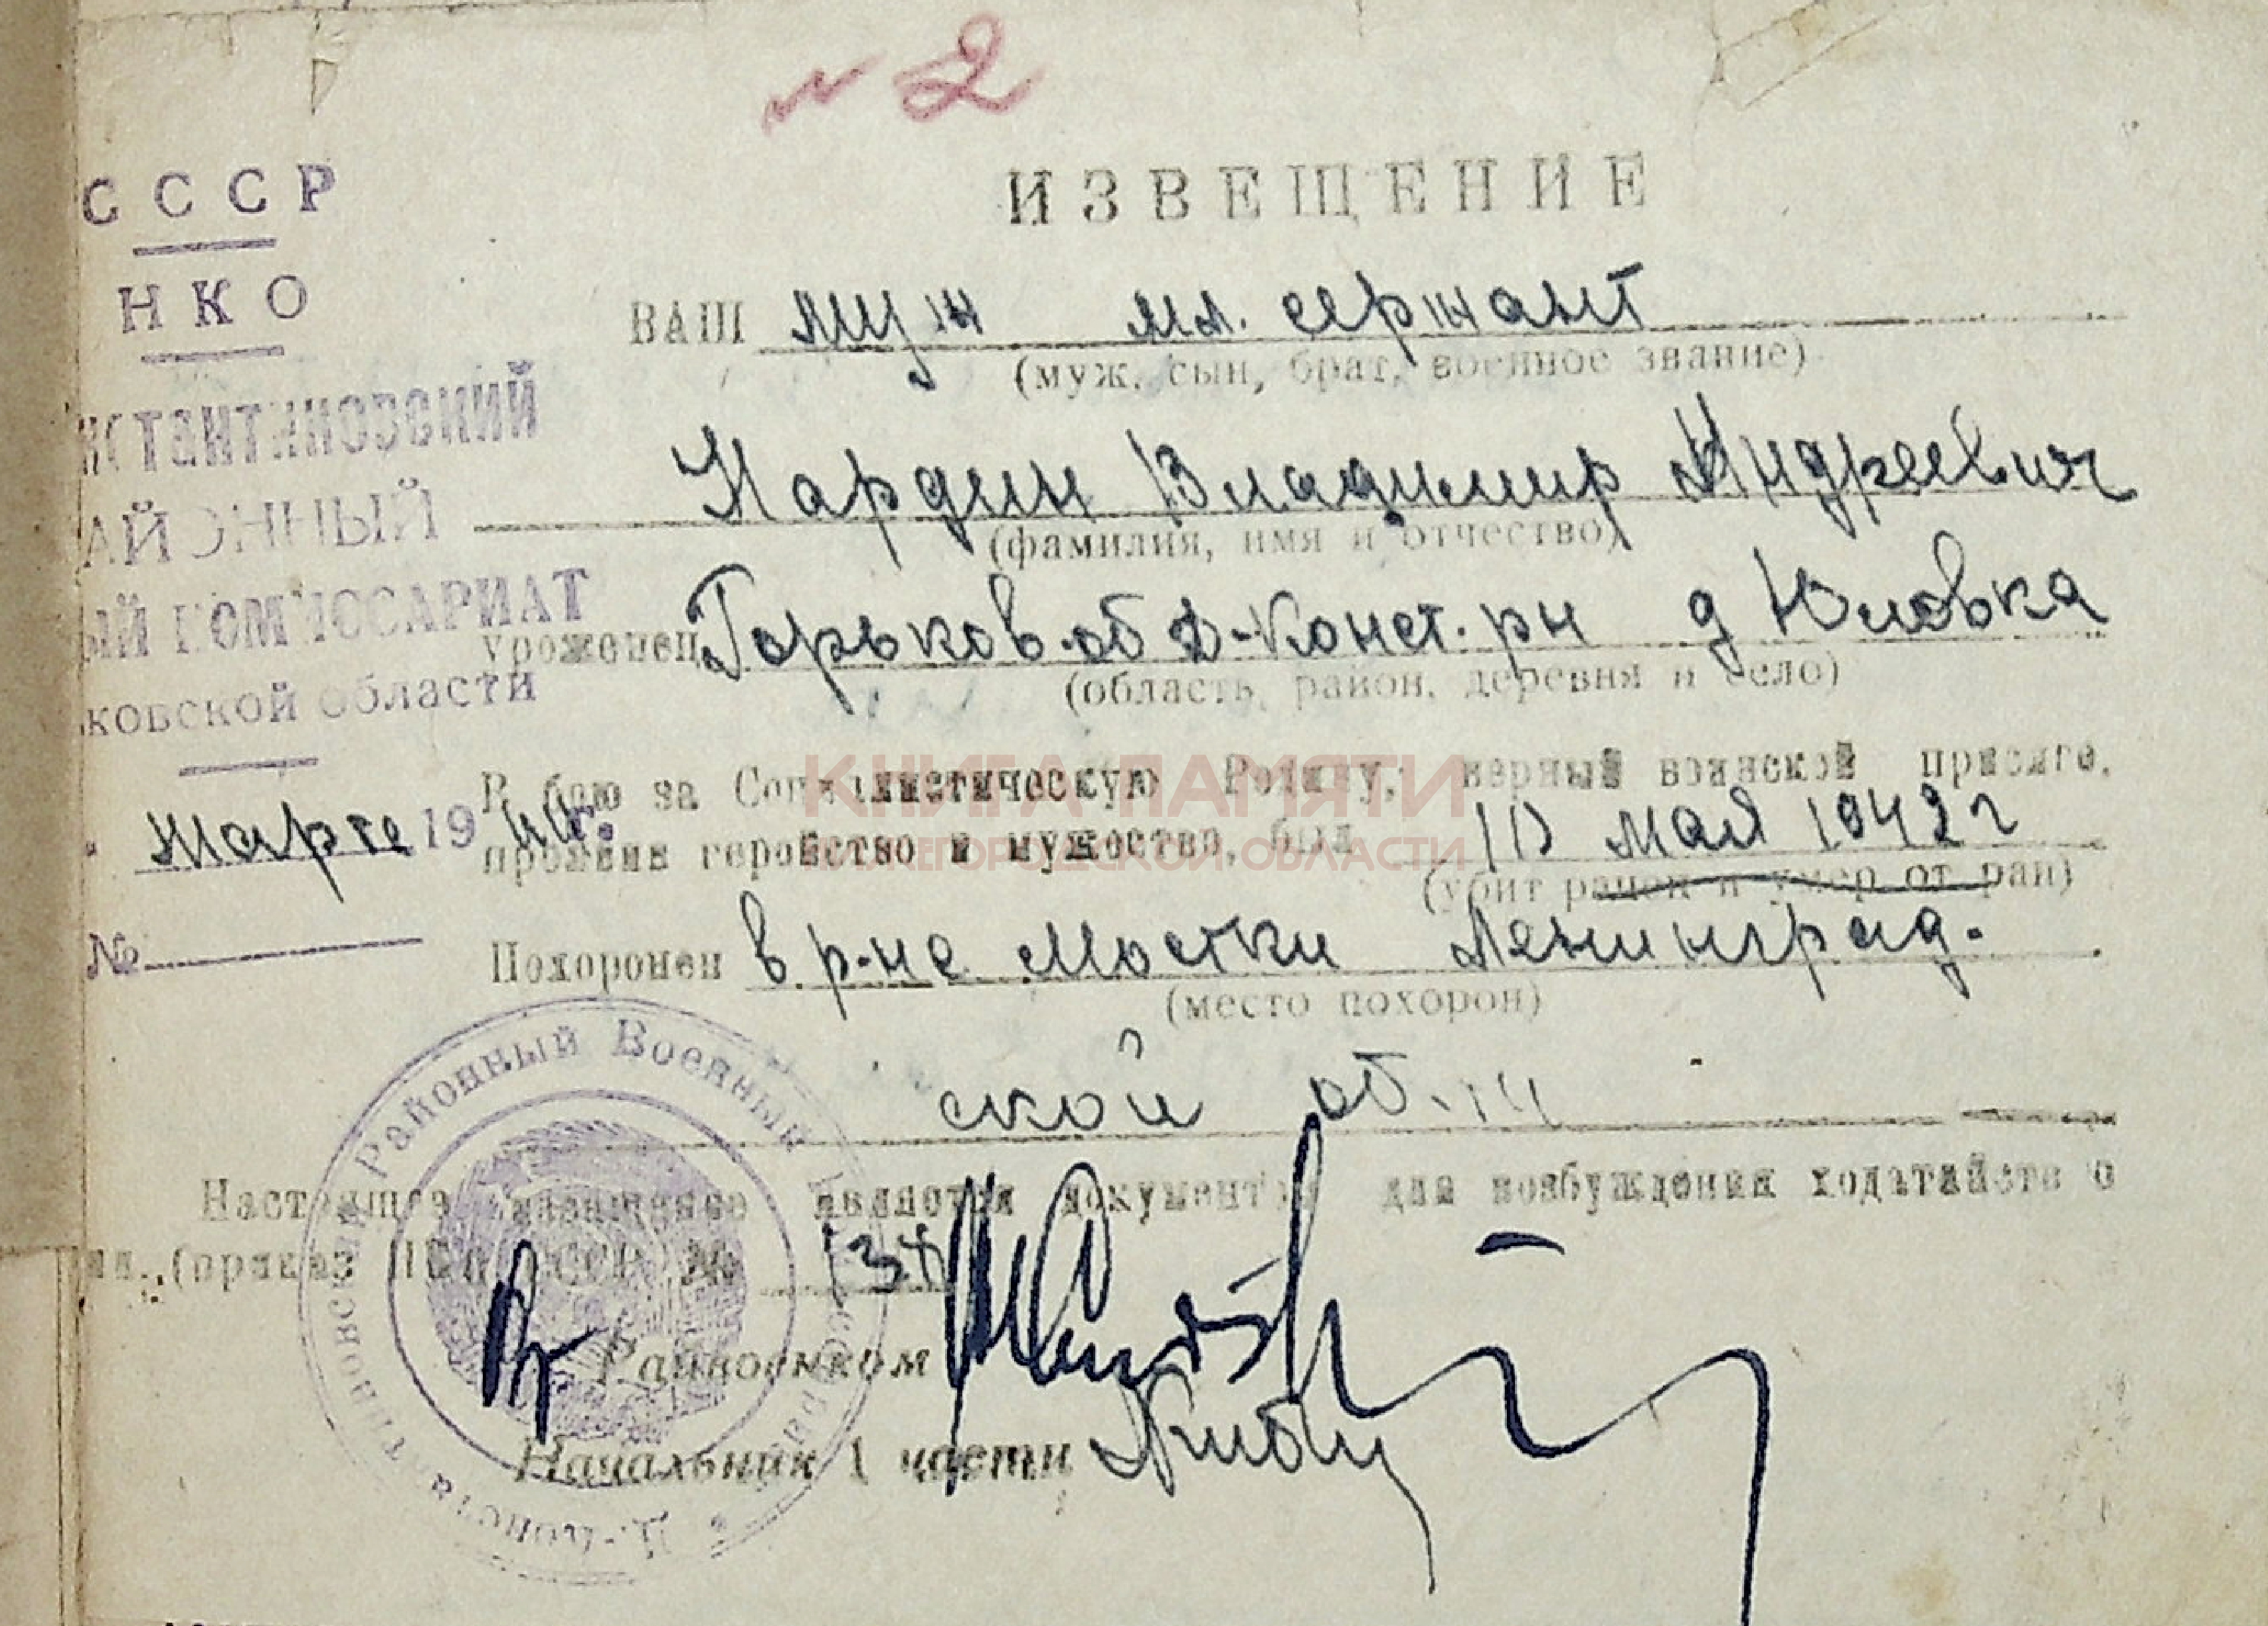 № 2
СССР
НКО
нстантиновский
АЙОННЫЙ
ЫЙ КОМИССАРИАТ
ковской области
марта 19
№
ИЗВЕЩЕНИЕ
ВАШ муж мл. сержант
(муж, сын, брат, военное звание)
Нардин Владимир Андреевич
(фамилия, имя и отчество)
уроженец Горьков. об Д-Конст. рн д Юловка
(область, район, деревня и село)
В бою за Социалистическую Родину, верный воинской присяге,
проявив геройство и мужество, был 10 мая 1942 г
(убит ранен и умер от ран)
Похоронен в р-не Мостки Ленинград.
(место похорон)
ской об-ти
Настоящее извещение является документом для возбуждения ходатайств о
ии. (приказ НКО СССР №
Райвоенком
Начальник 1 части
Д.-Константиновский Районный Военный Комиссариат
КНИГА ПАМЯТИ
НИЖЕГОРОДСКОЙ ОБЛАСТИ